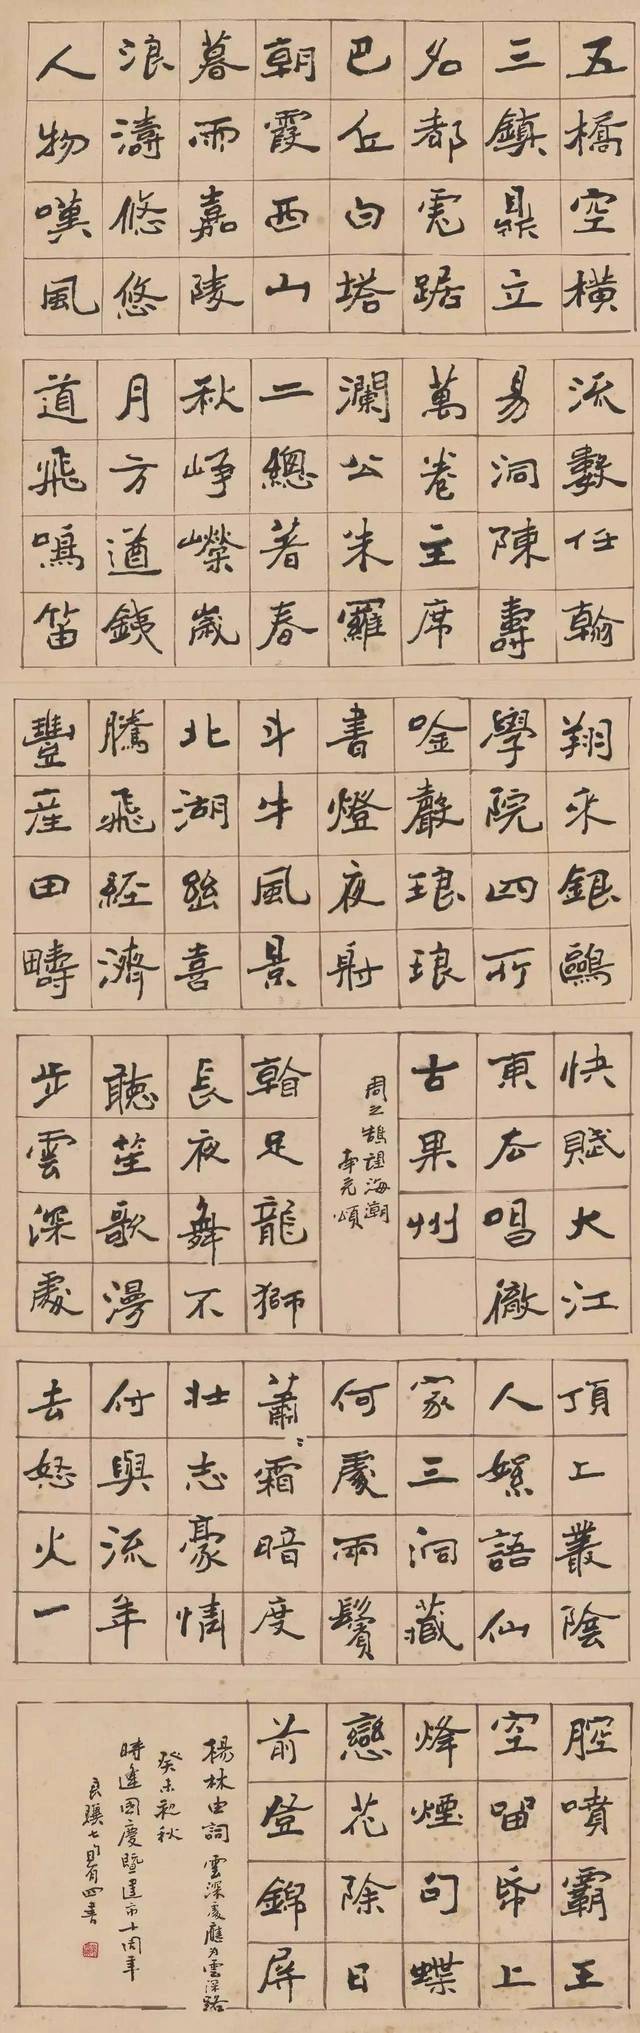 五橋空橫
三鎮鼎立
名都虎踞
巴丘白塔
朝霞西山
暮雨嘉陵
浪濤悠悠
人物嘆風
流數任翰
易洞陳壽
萬卷主席
瀾公朱羅
二總著春
秋崢嶸歲
月方遒鉄
道飛鳴笛
翔來銀鷗
學院四所
唫聲琅琅
書燈夜射
斗牛風景
北湖幽喜
騰飛經濟
豐産田疇
快賦大江
東去唱徹
古果州
周之鵠望海潮
南充頌
翰足龍獅
長夜舞不
聴笙歌漫
步雲深處
頂上叢陰
人絮語仙
家三洞藏
何處兩鬢
蕭〻霜暗度
壯志豪情
付與流年
去怒火一
腔噴霸王
空留帋上
烽煙句蝶
戀花除日
前登錦屏
楊林由詞 雲深處應为雲深路
癸未秋
時逢國慶暨建市十周年
良驥七十有四書